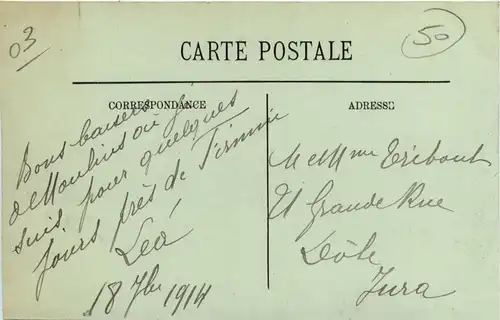 03
50
CARTE POSTALE
CORRESPONDANCE
Bons baisers
de Moulins où je
suis pour quelques
jours près de Firmin
Léa
18 7bre 1914
ADRESSE
M et Mme Tribout
21 Grande Rue
Dôle
Jura